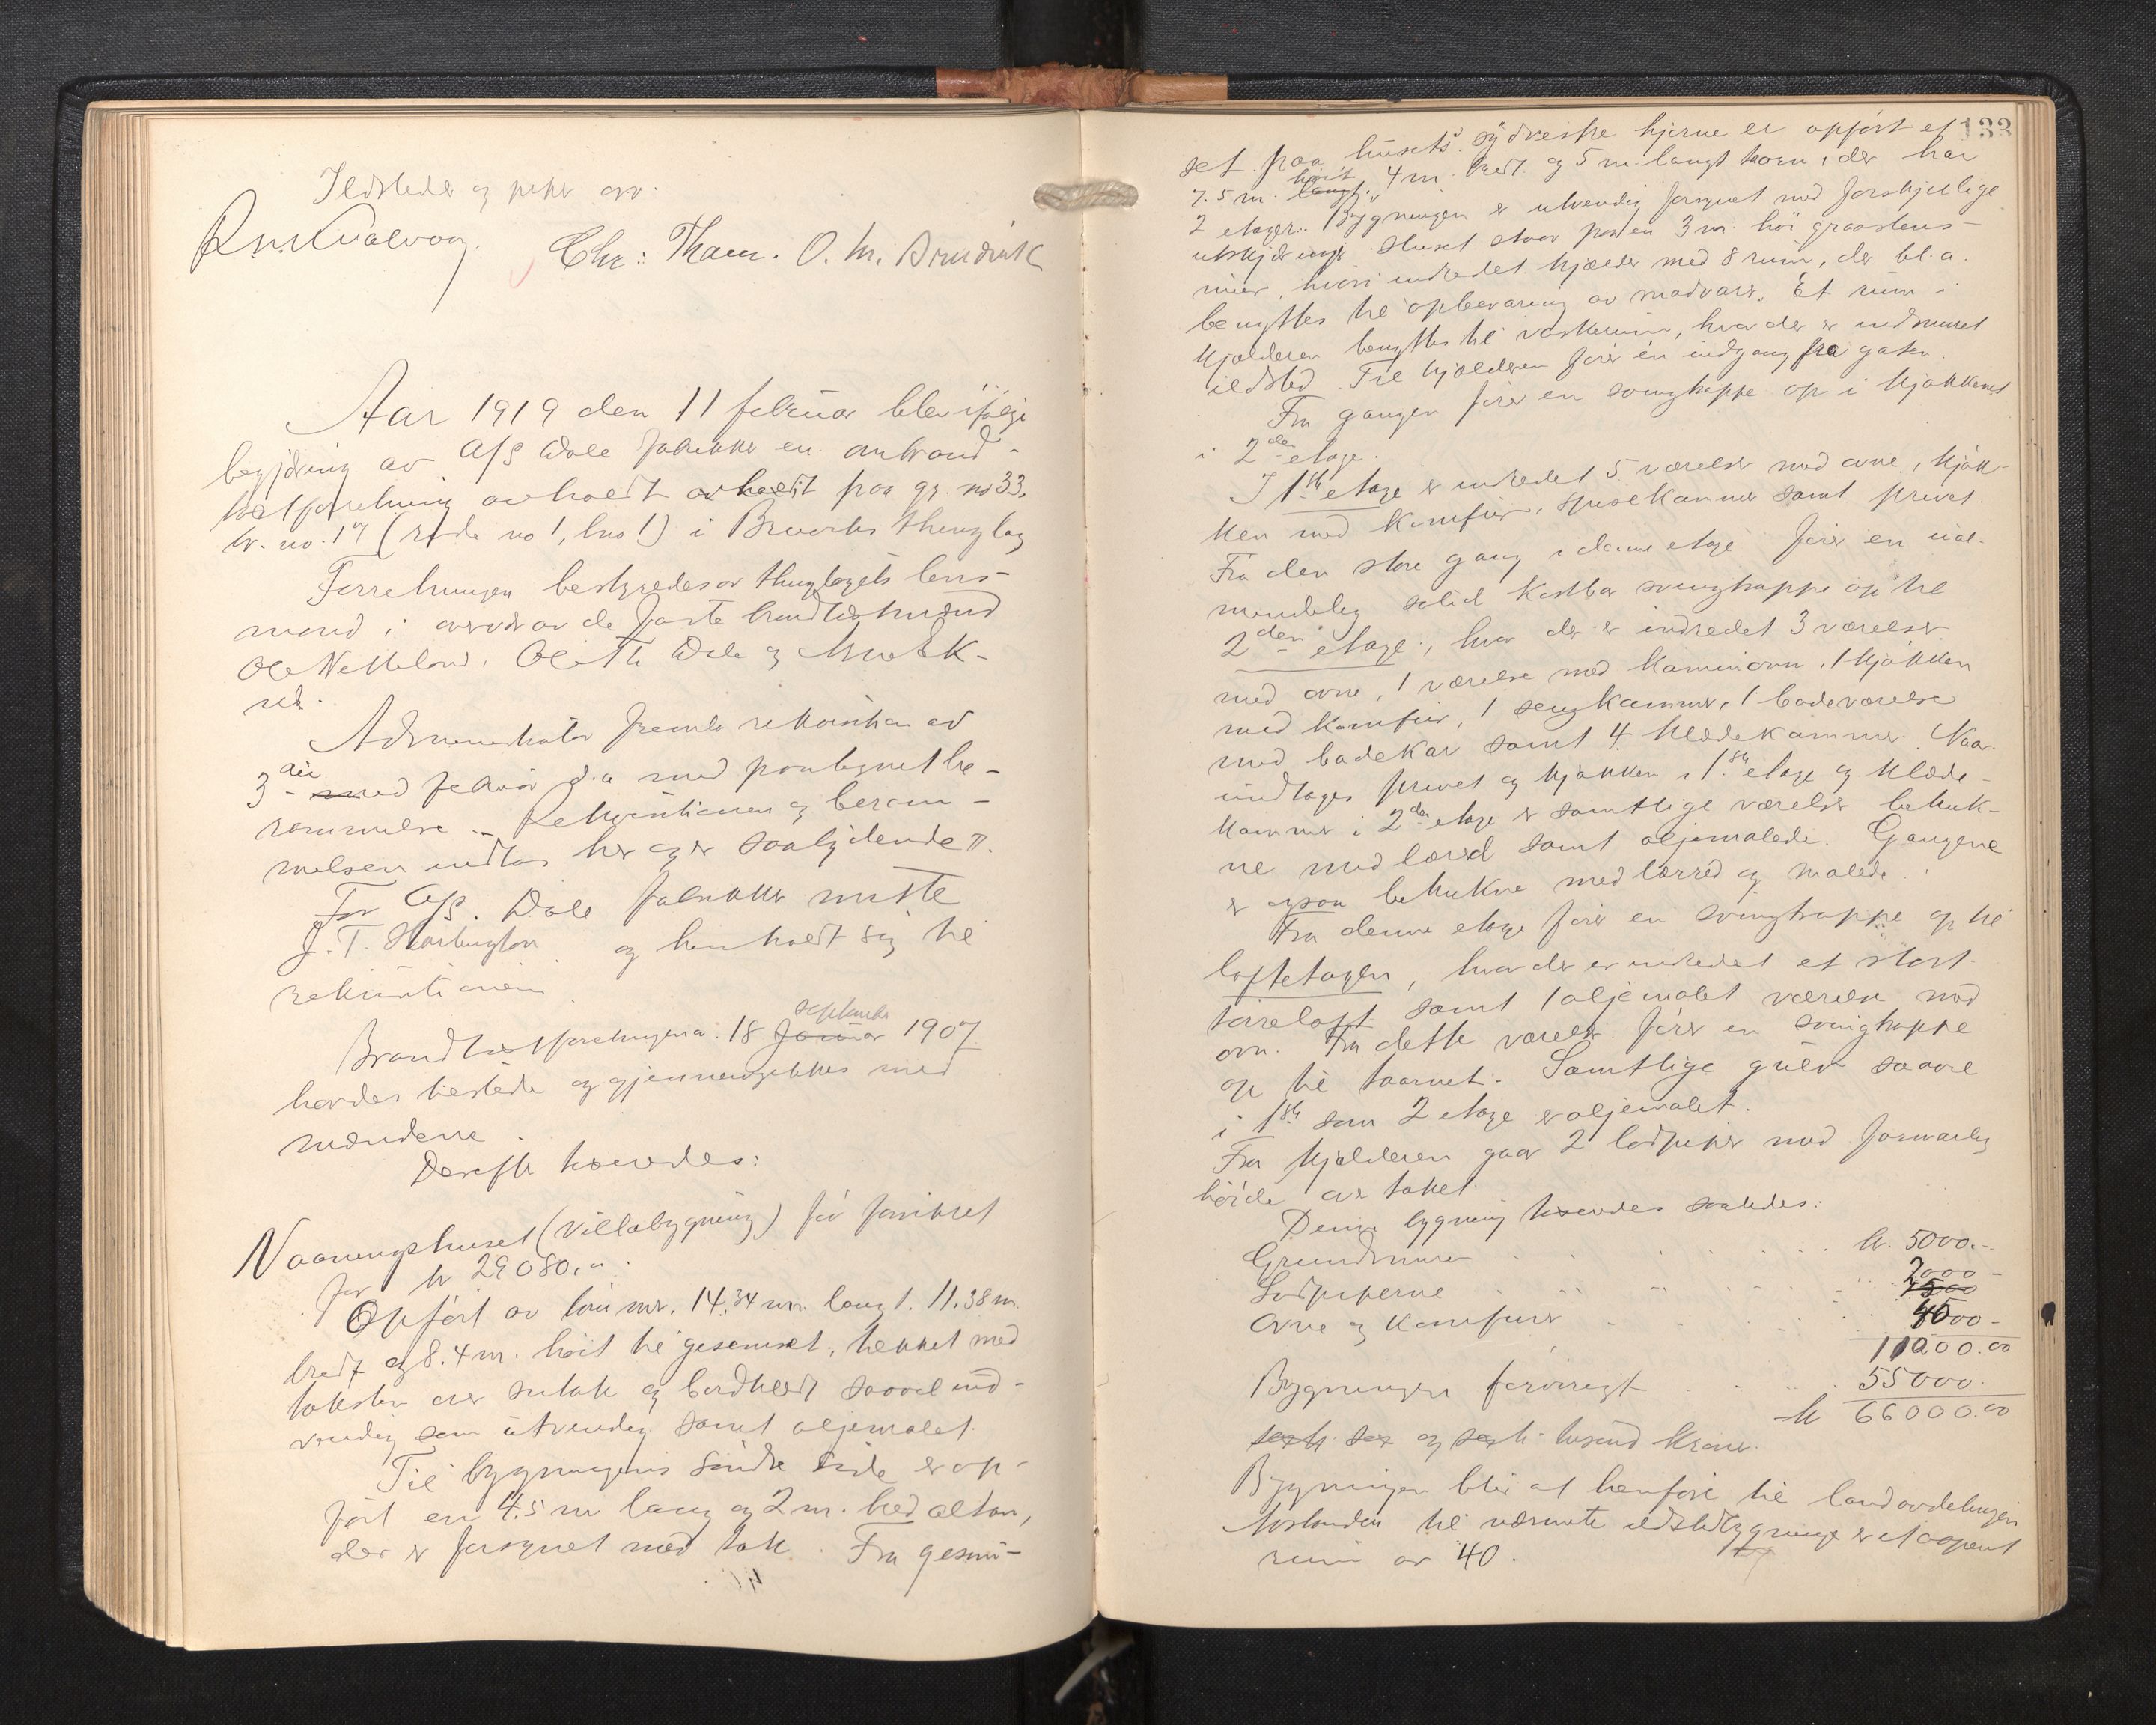 Ildsteder og piper orv.
Chr: Tham. O. M.
Aar 1919 den 11 februar blev ifølge
begjæring av A/S Dale fabrikker en ombrand-
takstforretning avholdt avholdt paa gr. no 33,
br. no. 17 (rode no 1, lno 1) i Bruviks thinglag
Forretningen bestyredes av thinglagets lens-
mand i overvær av de faste brandtakstmænd
Ole Netteland, Ole Th Dale og
Administrator fremla rekvisition av
3die med februar d.a med paategnet be-
rammelse. Rekvisitionen og beram-
melsen indtas her og er saalydende.
For A/S. Dale fabrikker møtte
J. T. og henholdt sig til
rekvisitionen
Brandtakstforretningen a. 18 Januar september 1907
havdes tilstede og gjennemgikkes med
mændene.
Derefter takseredes:
Vaaningshuset (villabygning) før forsikret
for kr 29080,00.
Opført av tømmer. 14.34 m. langt. 11.38 m.
bredt og 8.4 m. høit til gesemset, tækket med
taksten over sutak og bordklædt saavel ind-
vendig som utvendig samt oljemalet.
Til bygningens søndre side er op-
ført en 4.5 m lang og 2 m. bred altan,
der er forsynet med tak. Fra gesim-
133
set paa husets sydvestre hjørne er opført et
7.5 m. langt høit 4 m. bredt og 5 m. langt taarn, der har
2 etager. Bygningen er utvendig forsynet med forskjellige
utskjæringe. Huset staar paa en 3 m. høi graastens-
mur, hvori indredet kjælder med 8 rum, der bl. a.
benyttes til opbevaring av madvarer. Et rum i
kjælderen benyttes til vaskerum, hvor der er indmuret
ildsted. Til kjælderen fører én indgang fra gaten.
Fra gangen fører en svingtrappe op i kjøkkenet
i 2den etage.
I 1ste etage er indredet 5 værelser med ovne, kjøk-
ken med komfur, spisekammer samt privet.
Fra den store gang i denne etage fører en ual-
mindelig solid kostbar svingtrappe op til
2den etage, hvor der er indredet 3 værelser
med ovne, 1 værelse med kaminovn, 1 kjøkken
med komfur, 1 sengkammer, 1 badeværelse
med badekar samt 4 klædekammer. Naar
undtages privet og kjøkken i 1ste etage og klæde-
kammer i 2den etage er samtlige værelser betruk-
ne med lærred samt oljemalede. Gangene
er ogsaa betrukne med lærred og malede.
Fra denne etage fører en svingtrappe op til
loftetagen, hvor der er indredet et stort
tørreloft samt 1 oljemalet værelse med
ovn. Fra dette værelse fører en svingtrappe
op til taarnet. Samtlige gulv saavel
i 1ste som 2 etage er oljemalet.
Fra kjælderen gaar 2 lodpiper med forsvarlig
høide over taket.
Denne bygning takseredes saaledes:
Grundmuren kr. 5000.-
Lodpiperne 1500 2000-
Ovne og komfurer 4000-
11000.00
Bygningen forøvrigt 55000.
kr 66000.00
seksti sex og seksti tusend kroner.
Bygningen blir at henføre til landavdelingen
Avstanden til nærmeste ildstedbygninge er et aapent
rum av 40.